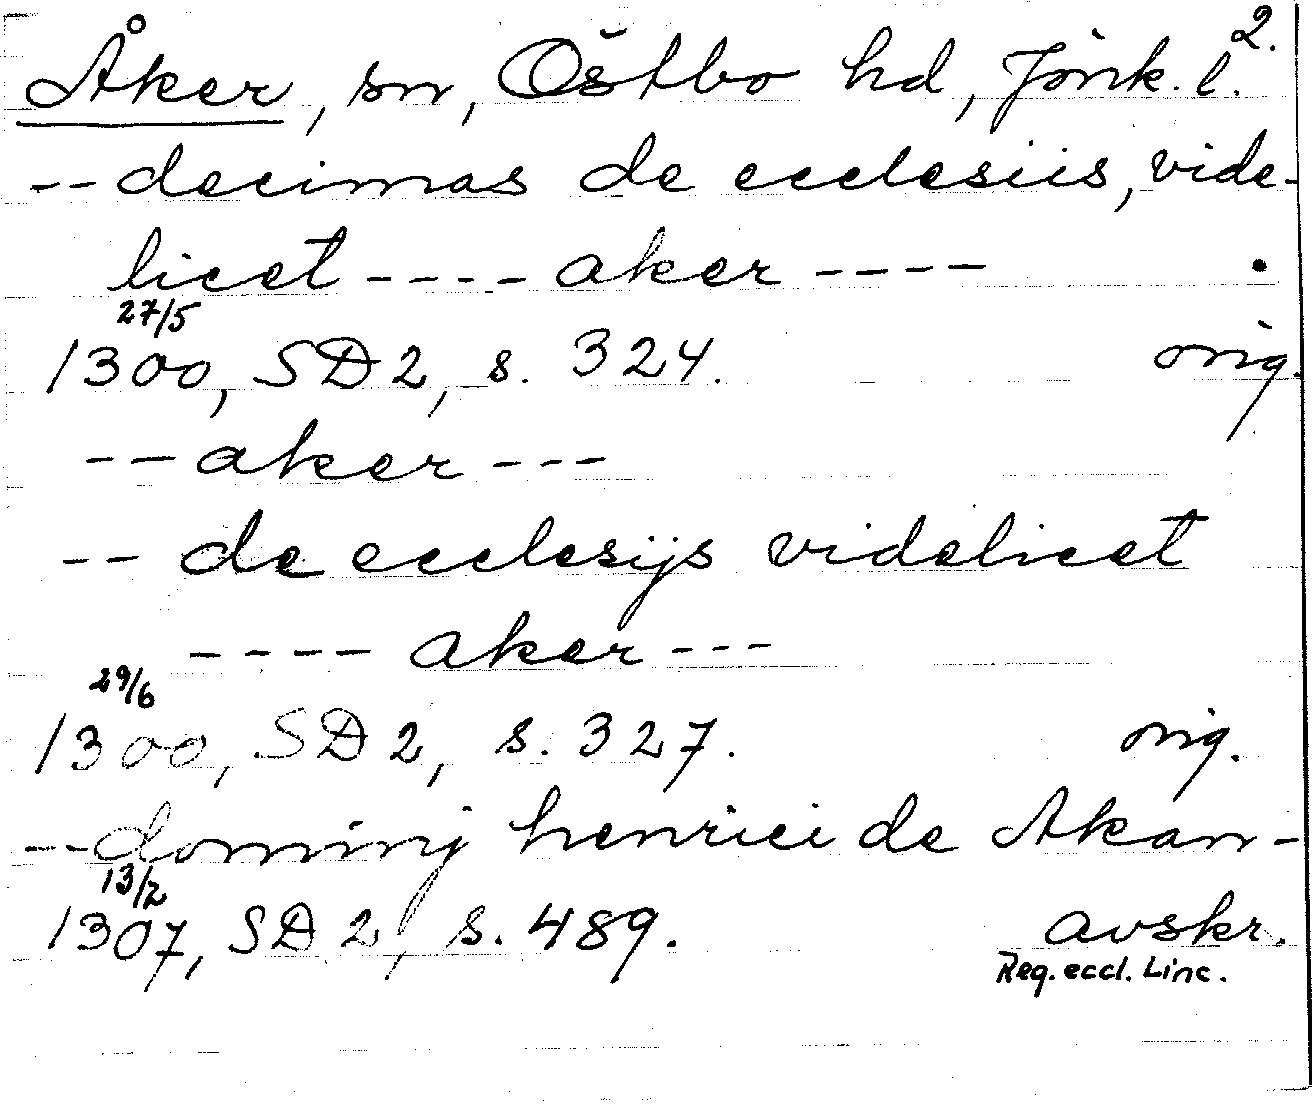 2.
Åker, sn, Östbo hd, Jönk. l.
-- decimas de ecclesiis, vide-
licet ---- aker ----
27/5
1300, SD 2, s. 324. orig.
-- aker ---
-- de ecclesijs videlicet
---- aker ---
29/6
1300, SD 2, s. 327. orig.
-- dominj henrici de Akarr -
13/2
1307, SD 2, s. 489. avskr.
Reg. eccl. Linc.